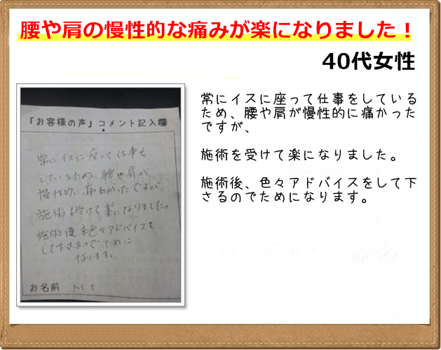 腰や肩の慢性的な痛みが楽になりました！
40代女性
常にイスに座って仕事をしている
ため、腰や肩が慢性的に痛かった
ですが、
施術を受けて楽になりました。
施術後、色々アドバイスをして下
さるのでためになります。
「お客様の声」コメント記入欄
常にイスに座って仕事を
しているため、腰や肩が
慢性的に痛かったですが、
施術を受けて楽になりました。
施術後、色々アドバイスを
して下さるのでために
なります。
お名前